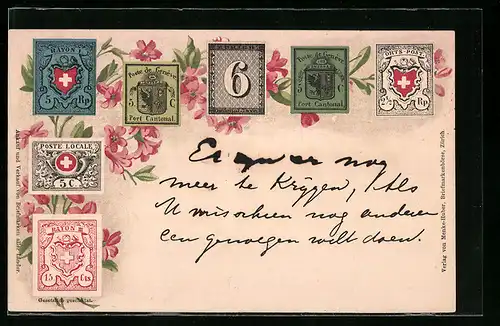 RAYON I.
5 Rp
Poste de Genève
5 C
Port Cantonal
6
Poste de Genève
5 C
Port Cantonal
ORTS-POST
2½ Rp
POSTE LOCALE
5 C
RAYON III
15 Cts
Gesetzlich geschützt.
Ankauf und Verkauf von Briefmarken aller Länder.
Verlag von Menke-Huber, Briefmarkenbörse, Zürich.
Er nog
meer te krijgen, Als
U misschien nog anderen
een genoegen wilt doen.